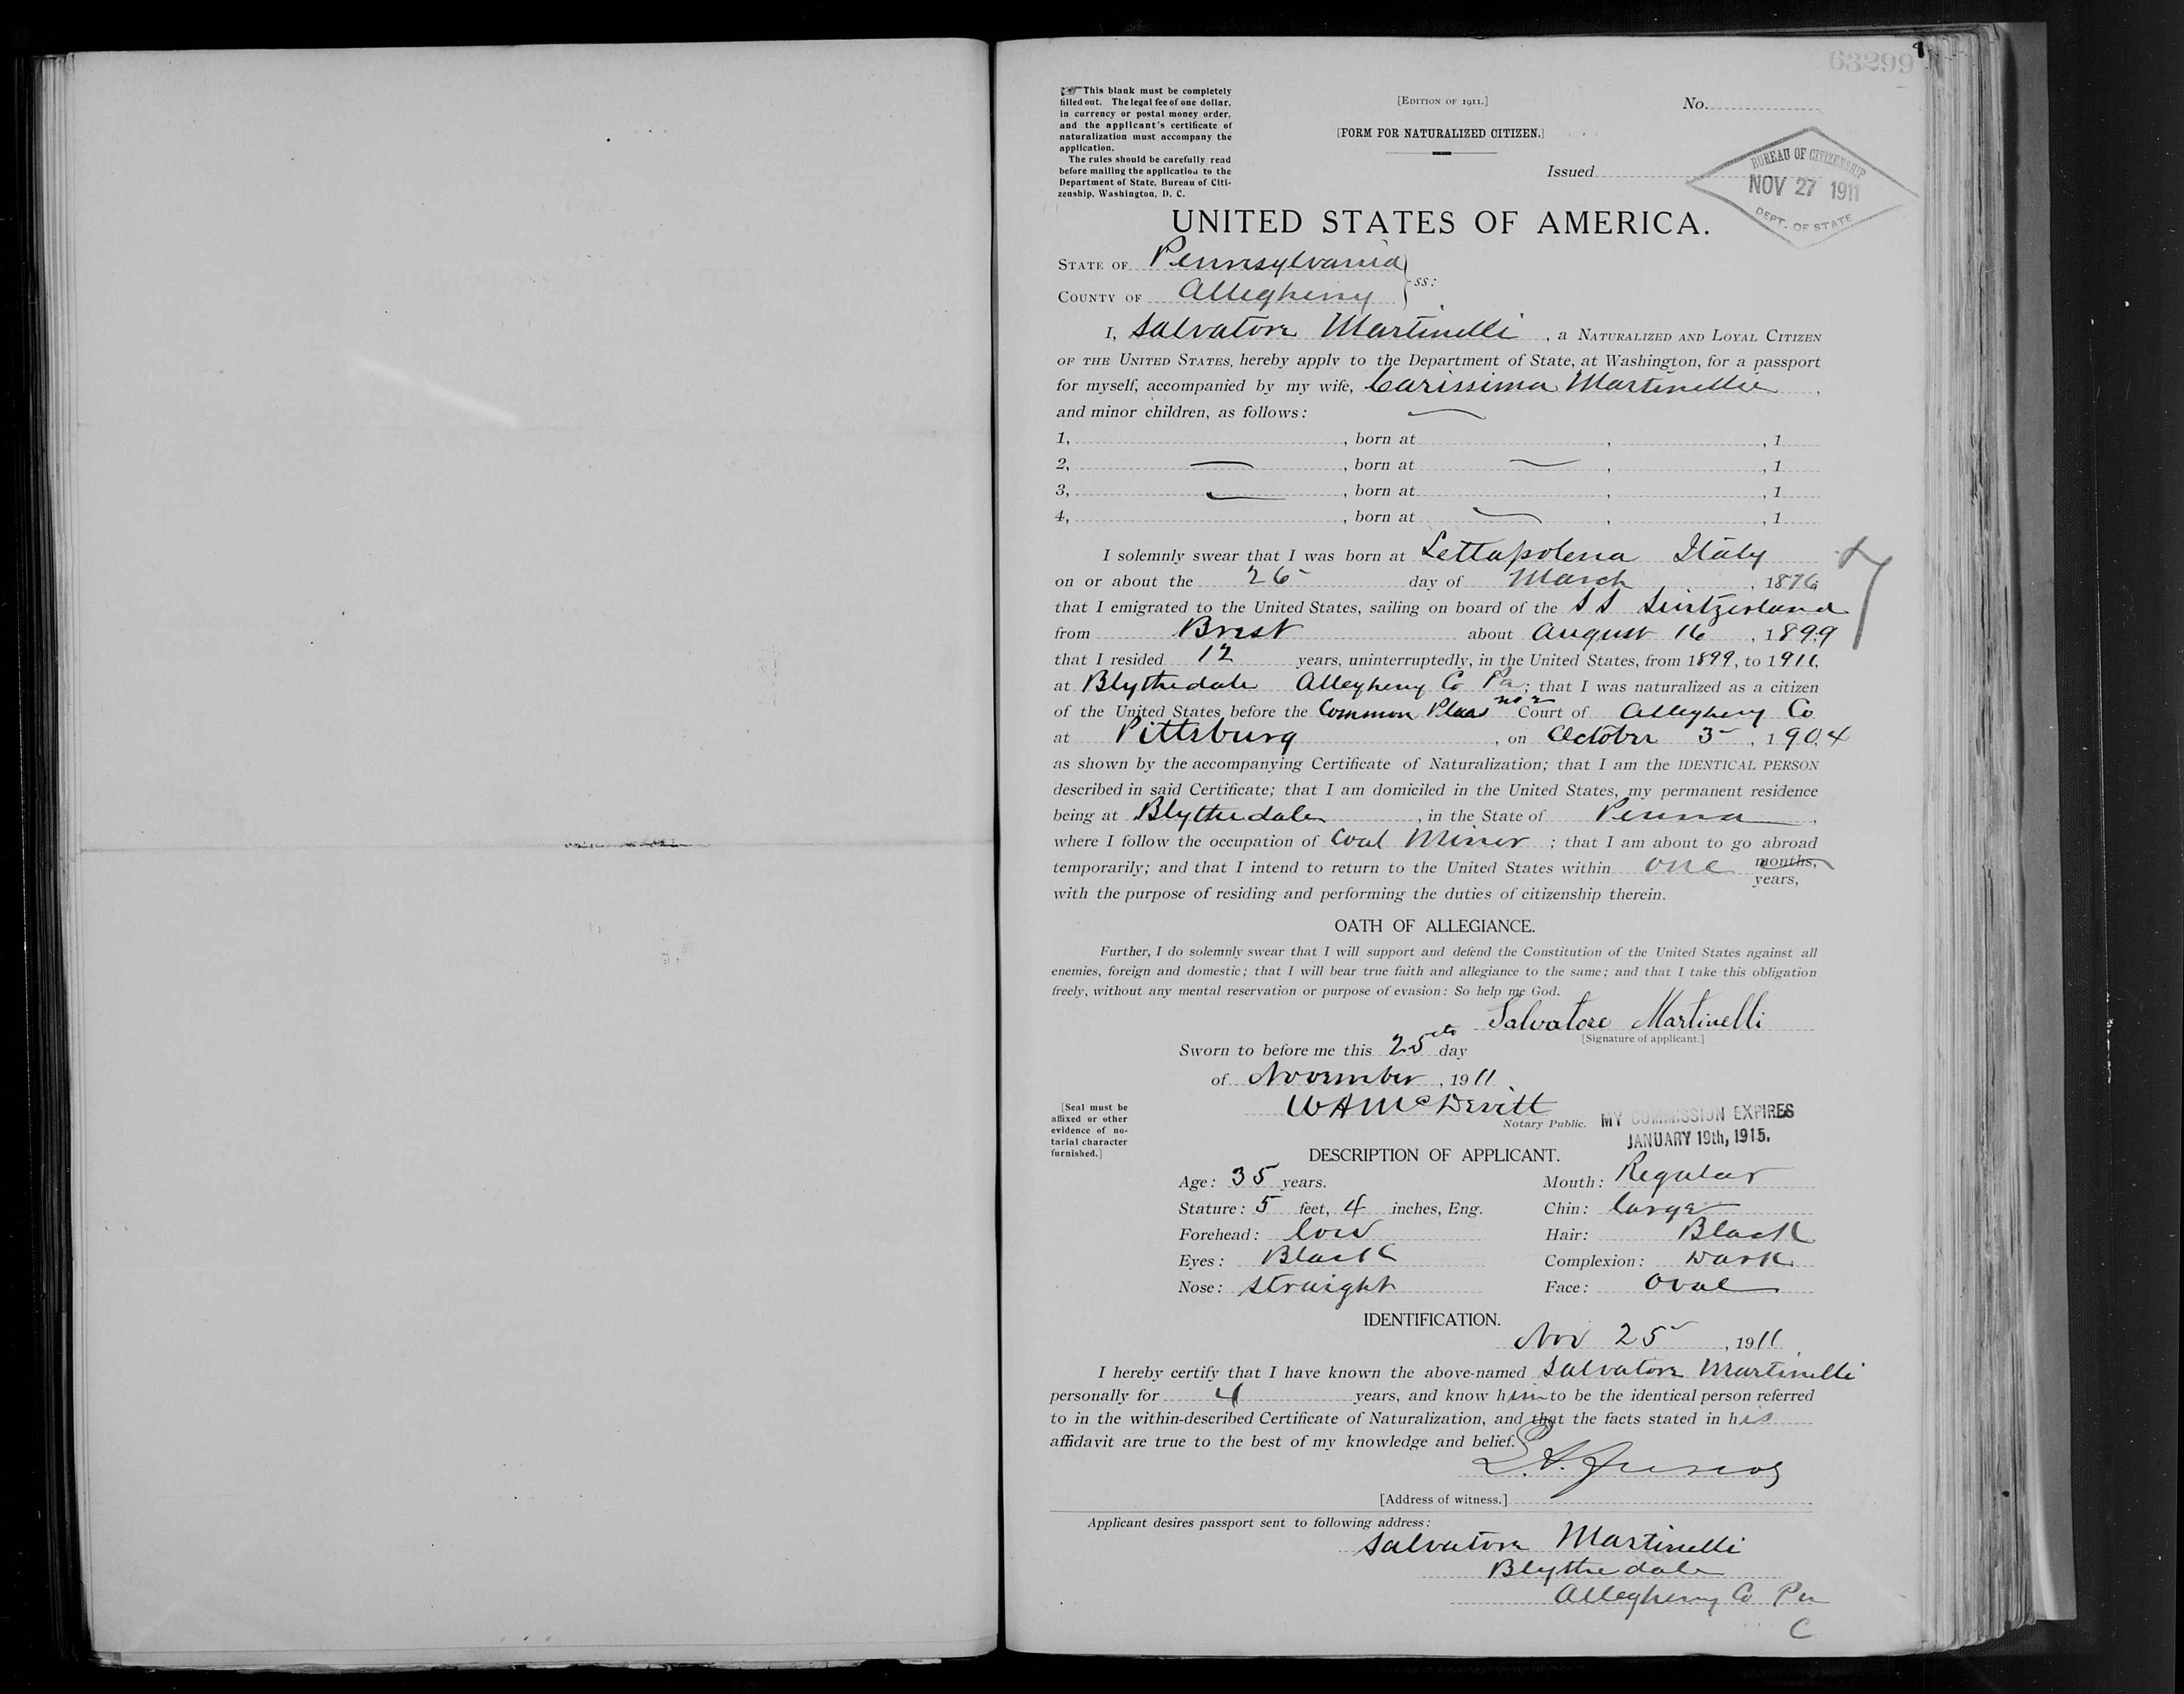 63299
This blank must be completely
filled out. The legal fee of one dollar,
in currency or postal money order,
and the applicant's certificate of
naturalization must accompany the
application.
The rules should be carefully read
before mailing the application to the
Department of State, Bureau of Citi-
zenship, Washington, D. C.
[EDITION OF 1911.]
[FORM FOR NATURALIZED CITIZEN.]
No.
Issued
BUREAU OF CITIZENSHIP
NOV 27 1911
DEPT. OF STATE
UNITED STATES OF AMERICA.
STATE OF Pennsylvania
COUNTY OF Allegheny ss:
I, Salvatore Martinelli, a NATURALIZED AND LOYAL CITIZEN
OF THE UNITED STATES, hereby apply to the Department of State, at Washington, for a passport
for myself, accompanied by my wife, Carissima Martinellie,
and minor children, as follows:
1, , born at , , 1
2, — , born at — , , 1
3, — , born at , , 1
4, , born at — , , 1
I solemnly swear that I was born at Lettapolena Italy
on or about the 26 day of March, 1876
that I emigrated to the United States, sailing on board of the S S Switzerland
from Brest about August 16, 1899
that I resided 12 years, uninterruptedly, in the United States, from 1899, to 1911,
at Blythedale Allegheny Co Pa; that I was naturalized as a citizen
of the United States before the Common Pleas no 2 Court of Allegheny Co
at Pittsburg, on October 3, 1904
as shown by the accompanying Certificate of Naturalization; that I am the IDENTICAL PERSON
described in said Certificate; that I am domiciled in the United States, my permanent residence
being at Blythedale, in the State of Penna,
where I follow the occupation of Coal Miner; that I am about to go abroad
temporarily; and that I intend to return to the United States within one months, years,
with the purpose of residing and performing the duties of citizenship therein.
OATH OF ALLEGIANCE.
Further, I do solemnly swear that I will support and defend the Constitution of the United States against all
enemies, foreign and domestic; that I will bear true faith and allegiance to the same; and that I take this obligation
freely, without any mental reservation or purpose of evasion: So help me God.
Salvatore Martinelli
[Signature of applicant.]
Sworn to before me this 25th day
of November, 1911
W A McDevitt
Notary Public.
MY COMMISSION EXPIRES
JANUARY 19th, 1915.
[Seal must be
affixed or other
evidence of no-
tarial character
furnished.]
DESCRIPTION OF APPLICANT.
Age: 35 years. Mouth: Regular
Stature: 5 feet, 4 inches, Eng. Chin: large
Forehead: low Hair: Black
Eyes: Black Complexion: Dark
Nose: straight Face: Oval
IDENTIFICATION.
Nov 25, 1911
I hereby certify that I have known the above-named Salvatore Martinelli
personally for 4 years, and know him to be the identical person referred
to in the within-described Certificate of Naturalization, and that the facts stated in his
affidavit are true to the best of my knowledge and belief.
[Address of witness.]
Applicant desires passport sent to following address:
Salvatore Martinelli
Blythedale
Allegheny Co Pa
C